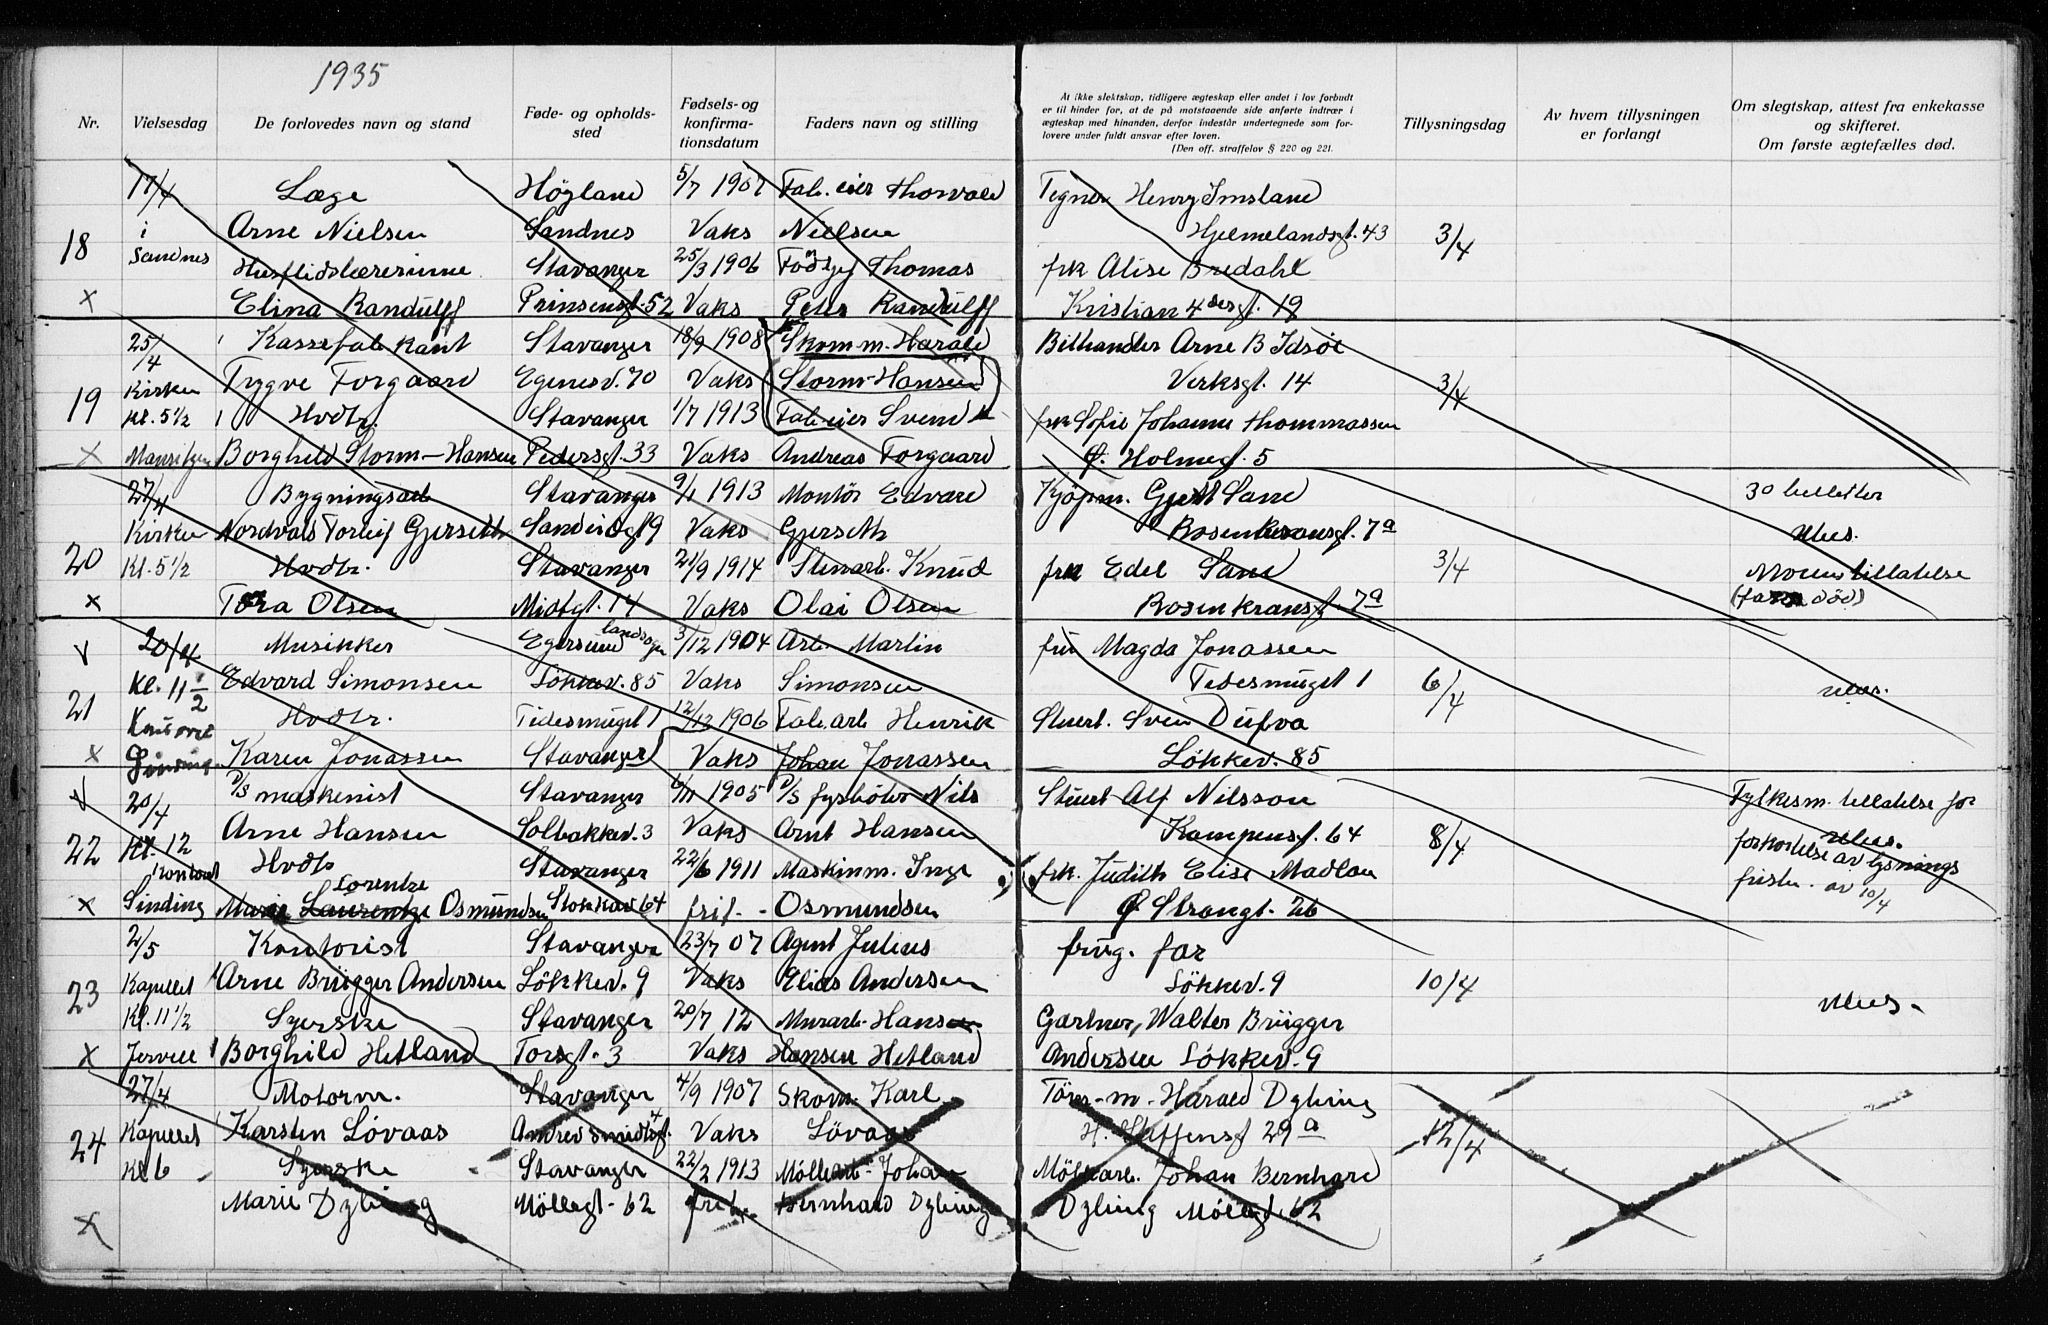 1935
Nr.
Vielsesdag
De forlovedes navn og stand
Føde- og opholds-
sted
Fødsels- og
konfirma-
tionsdatum
Faders navn og stilling
At ikke slektskap, tidligere ægteskap eller andet i lov forbudt
er til hinder for, at de på motstaaende side anførte indtrær i
ægteskap med hinanden, derfor indestår undertegnede som for-
lovere under fuldt ansvar efter loven.
(Den off. straffelov § 220 og 221.
Tillysningsdag
Av hvem tillysningen
er forlangt
Om slegtskap, attest fra enkekasse
og skifteret.
Om første ægtefælles død.
17/4 Læge Høyland 5/7 1907 Fab.eier Thorvald Tegner Henry Imsland
18 i Arne Nielsen Sandnes Vaks Nielsen Hjelmelandsgt. 43 3/4
Sandnes Husflidslærerinne Stavanger 25/3 1906 Thomas frk Alise Bredahl
x Elina Randulff Prinsensgt. 52 Vaks Peter Randulff Kristian 4desgt. 19
25/4 Kassefabrikant Stavanger 18/9 1908 Skom.m. Harald Bilhandler Arne B Idsøe
19 Kirken Trygve Torgaard Egenesv. 70 Vaks Storm-Hansen Verksgt. 14 3/4
Kl. 5 1/2 Hvdtr. Stavanger 1/7 1913 Fab-eier Svend frk Sofie Johanne Thommassen
x Borghild Storm-Hansen Pedersgt. 33 Vaks Andreas Torgaard Ø. Holmegt. 5
27/4 Bygningsarb Stavanger 9/1 1913 Montør Edvard Kjøpm. Gjert Sand 30 billetter
20 Kirken Nordvald Torleif Gjerseth Vaks Gjerseth Rosenkransgt. 7a
Kl. 5 1/2 Hvdtr. Stavanger 21/9 1914 Stenarb. Knud frk Edel Sand 3/4 Mors tillatelse
x Tora Olsen Midtgt. 14 Vaks Olai Olsen Rosenkransgt. 7a (far død)
v 20/4 Musikker Egersund landsogn 3/12 1904 Arb. Martin fru Magda Jonassen
21 Kl. 11 1/2 Edvard Simonsen Løkkev. 85 Vaks Simonsen Tidemannsgt 1 6/4
Kontoret Hvdtr. 12/12 1906 Fab.arb Henrik Stuert. Sven Dufva
x Karen Jonassen Stavanger Vaks Johan Jonassen Løkkev. 85
v 20/4 D/S maskinist Stavanger 6/11 1905 D/S fyrbøter Nils Stuert Alf Nilsson Fylkesm. tillatelse for
22 Kl. 12 Arne Hansen Solbakkev. 3 Vaks Arnt Hansen Kampensgt. 64 8/4 forkortelse av lysnings
kontoret Hvdtr Stavanger 22/6 1911 Maskinm. Inge frk. Judith Elise Madland fristen av 10/4
x Sinding Marie Laurentze Lorentze Osmundsen Stokkav 64 frit. Osmundsen Ø Strandgt. 26
2/5 Kontorist Stavanger 23/7 07 Agent Julius brug. far
23 Kapellet Arne Brügger Andersen Løkkev. 9 Vaks Elias Andersen Løkkev. 9 10/4
Kl. 11 1/2 Syerske Stavanger 20/7 12 Murarb. Hans Gartner, Walter Brügger
x Jervell Borghild Hetland Torsgt. 3 Vaks Hansen Hetland Andersen Løkkev. 9
27/4 Motorm. Stavanger 4/9 1907 Skom. Karl Harald Dybing
24 Kapellet Karsten Løvaas Andreas Smidtsgt. 4 Vaks Løvaas H. Steffensgt 29a 12/4
Kl 6 Syerske Stavanger 22/2 1913 Møllearb. Johan Møllearb. Johan Bernhard
x Marie Dybing Møllegt. 62 frit. Bernhard Dybing Dybing Møllegt. 62